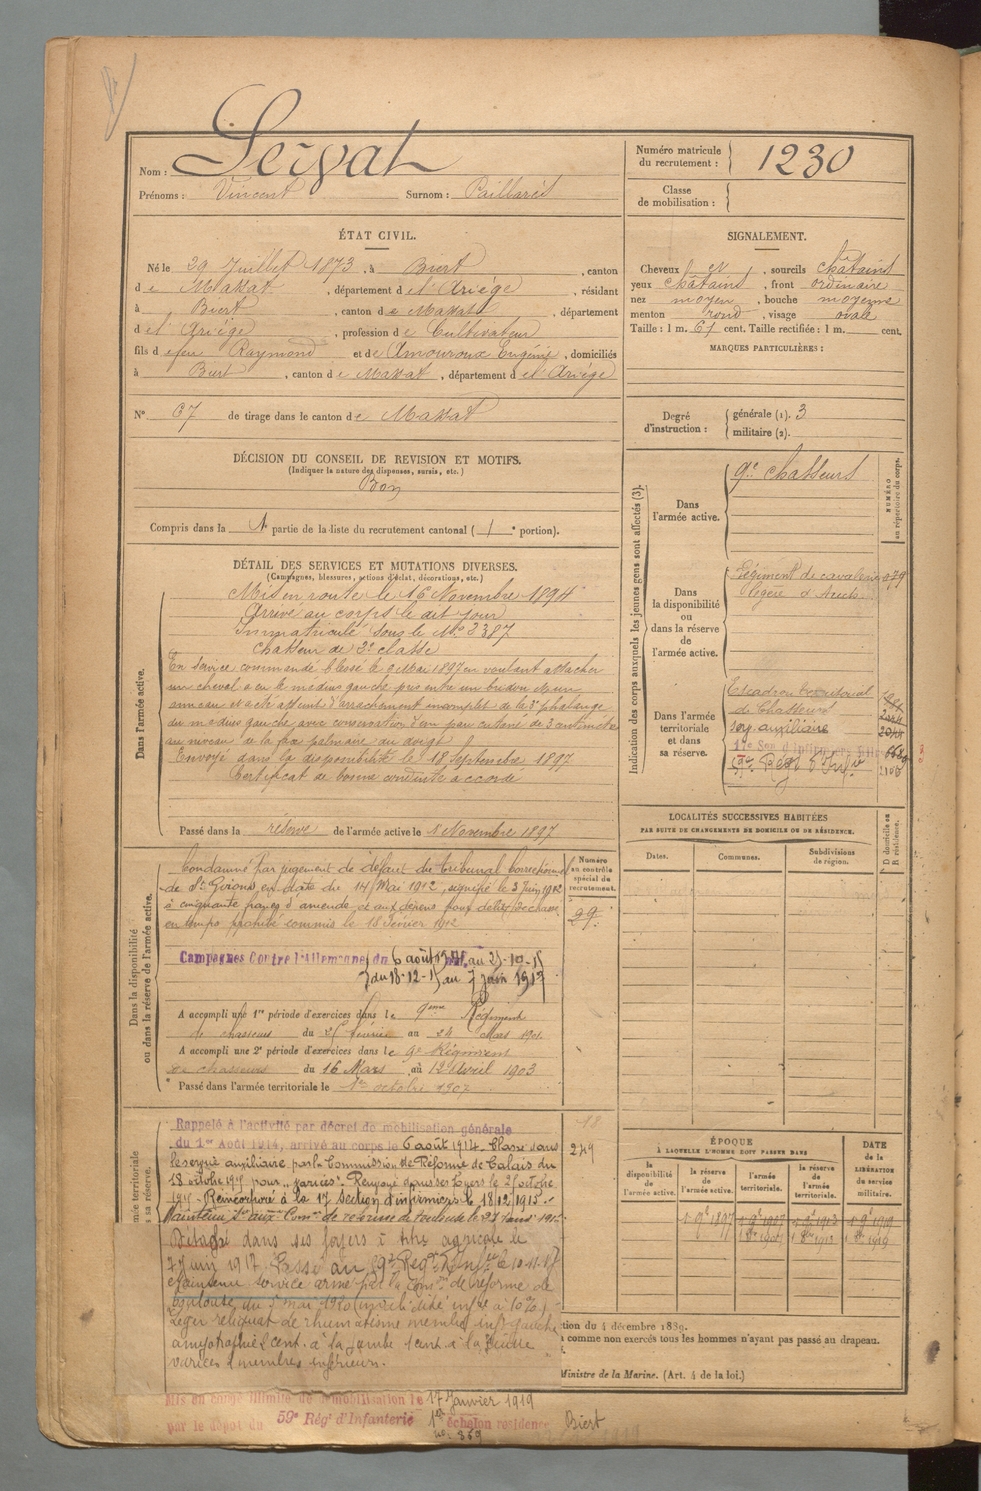 Nom : Servat
Prénoms : Vincent Surnom : Paillarès
Numéro matricule
du recrutement : 1230
Classe
de mobilisation :
ÉTAT CIVIL.
Né le 29 Juillet 1873, à Biert, canton
de Massat, département de l'Ariège, résidant
à Biert, canton de Massat, département
de l'Ariège, profession de Cultivateur
fils de feu Raymond et de Amouroux Eugénie, domiciliés
à Biert, canton de Massat, département de l'Ariège
N° 67 de tirage dans le canton de Massat
SIGNALEMENT.
Cheveux et, sourcils châtains
yeux châtains, front ordinaire
nez moyen, bouche moyenne
menton rond, visage ovale
Taille : 1 m. 61 cent. Taille rectifiée : 1 m. cent.
MARQUES PARTICULIÈRES :
Degré
d'instruction :
générale (1). 3
militaire (2).
DÉCISION DU CONSEIL DE REVISION ET MOTIFS.
(Indiquer la nature des dispenses, sursis, etc.)
Bon
Compris dans la 1e partie de la liste du recrutement cantonal (1e portion).
DÉTAIL DES SERVICES ET MUTATIONS DIVERSES.
(Campagnes, blessures, actions d'éclat, décorations, etc.)
Dans l'armée active.
Mis en route le 16 Novembre 1894
Arrivé au corps le dit jour
Immatriculé sous le No 3387
Chasseur de 2e classe
En service commandé blessé le Mai 1897 en voulant attacher
un cheval a eu le médius gauche pris entre un bridon et un
anneau et a été atteint d'arrachement incomplet de la 3e phalange
du médius gauche avec conservation d'un peu cutané de 3 centimètres
au niveau de la face palmaire du doigt
Envoyé dans la disponibilité le 18 Septembre 1897
Certificat de bonne conduite accordé
Passé dans la réserve de l'armée active le 1 Novembre 1897
Indication des corps auxquels les jeunes gens sont affectés (3).
NUMÉRO
au répertoire du corps.
Dans
l'armée active.
9e Chasseurs
Dans
la disponibilité
ou
dans la réserve
de
l'armée active.
Régiment de cavalerie
légère d'Auch
Dans l'armée
territoriale
et dans
sa réserve.
Escadron territorial
de Chasseurs
serv auxiliaire
17e Son d'Infirmiers
59e Régt d'Infie
LOCALITÉS SUCCESSIVES HABITÉES
PAR SUITE DE CHANGEMENTS DE DOMICILE OU DE RÉSIDENCE.
Dates.
Communes.
Subdivisions
de région.
D domicile ou
R résidence.
Dans la disponibilité
ou dans la réserve de l'armée active.
Numéro
au contrôle
spécial du
recrutement.
29
Condamné par jugement de défaut du Tribunal correctionnel
de St Girons en date du 14 Mai 1912, signifié le 3 Juin 1912
à cinquante francs d'amende et aux dépens pour délit de chasse
en temps prohibé commis le 18 Février 1912
Campagnes Contre l'Allemagne du 6 août 1914 au 25-10-15
du 18-12-15 au 7 juin 1917
A accompli une 1re période d'exercices dans le 9ème Régiment
de chasseurs du 25 février au 24 Mars 1901
A accompli une 2e période d'exercices dans le 9e Régiment
de chasseurs du 16 Mars au 12 Avril 1903
Passé dans l'armée territoriale le 1er octobre 1907
249
Rappelé à l'activité par décret de mobilisation générale
du 1er Août 1914, arrivé au corps le 6 août 1914. Classé dans
le service auxiliaire par la Commission de Réforme de Calais du
18 octobre 1915 pour "varices". Renvoyé dans ses foyers le 25 octobre
1915. Réincorporé à la 17 Section d'infirmiers le 18/12/1915.
Maintenu Sce aux Comon de réforme de Toulouse le 27 mars 1917
Détaché dans ses foyers à titre agricole le
7 Juin 1917. Passé au 59e Régt d'Infie le 10-11-17
Maintenu service armé par la Comon de réforme de
Toulouse du 5 mai 1920 invalidité infre à 10% :
Léger reliquat de rhumatisme membre inf gauche
amyotrophie 2 cent. à la jambe 1 cent. à la cuisse
varices 2 membres inférieurs.
ÉPOQUE
À LAQUELLE L'HOMME DOIT PASSER DANS
la
disponibilité
de
l'armée active.
la réserve
de
l'armée active.
l'armée
territoriale.
la réserve
de
l'armée
territoriale.
DATE
de la
LIBÉRATION
du service
militaire.
1 9e 1897
1 9e 1907
1 9e 1913
1 9e 1919
tion du 4 décembre 1889.
comme non exercés tous les hommes n'ayant pas passé au drapeau.
Ministre de la Marine. (Art. 4 de la loi.)
Mis en congé illimité de démobilisation le 17 Janvier 1919
par le dépôt du 59e Régt d'Infanterie 1er échelon résidence Biert
no: 359